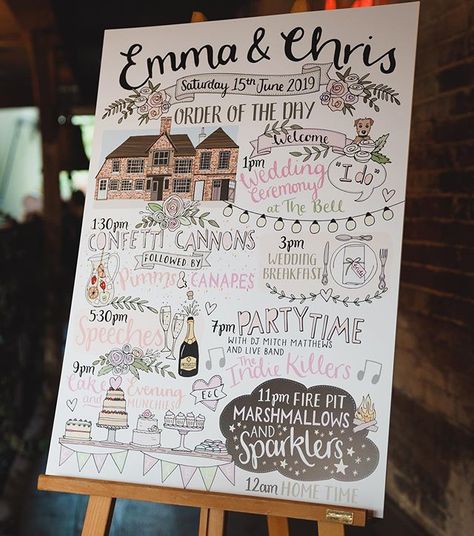 Emma & Chris
Saturday 15th June 2019
ORDER OF THE DAY
Welcome
1pm
Wedding
Ceremony
at The Bell
"I do"
1:30pm
CONFETTI CANNONS
FOLLOWED BY
Pimms & CANAPES
3pm
WEDDING
BREAKFAST
5:30pm
Speeches
7pm PARTY TIME
WITH DJ MITCH MATTHEWS
AND LIVE BAND
The Indie Killers
9pm
Cake and Evening
MUNCHIES
E&C
11pm FIRE PIT
MARSHMALLOWS
AND Sparklers
12am HOME TIME